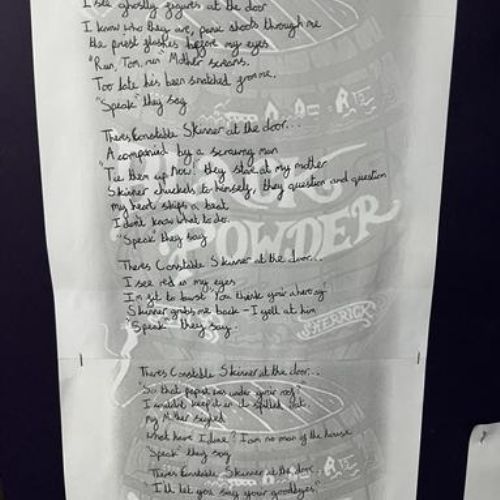 I see ghostly figures at the door
I know who they are, panic shoots through me
the priest flashes before my eyes
"Run, Tom, run" Mother screams.
Too late he's been snatched from me.
"Speak" they say
Theres Constable Skinner at the door...
A companied by a scrawny man
"Tie them up now! they stare at my mother
Skinner chuckels to himself, they question and question
my heart skips a beat
I don't know what to do.
"Speak" they say
Theres Constable Skinner at the door...
I see red in my eyes
I'm set to burst "You think you're a hero
Skinner grabs me back - I yell at him
"Speak" they say.
Theres Constable Skinner at the door...
"So that papist was under your roof?"
I couldn't keep it in it spilled out.
my Mother sighed
What have I done? I am no man of the house
"Speak" they say
Theres Constable Skinner at the door...
"I'll let you say your goodbyes"
POWDER
HERRICK